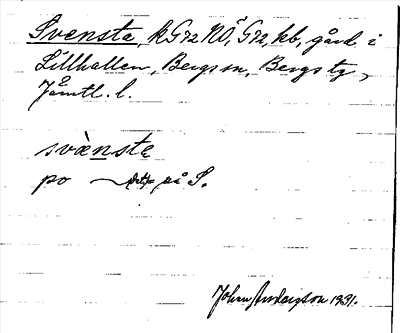 Svensta, kG72NÖ, G72, hb, gård i
Lillhallen, Bergs sn, Bergs tg,
Jämtl. l.
svænsta
po ~ på S.
Johan Anderzson 1931.